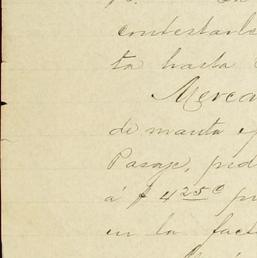 contestarle
ta hasta
Merca
de manta y
Pasaje, ped
á $ 4 25 c
en la fact